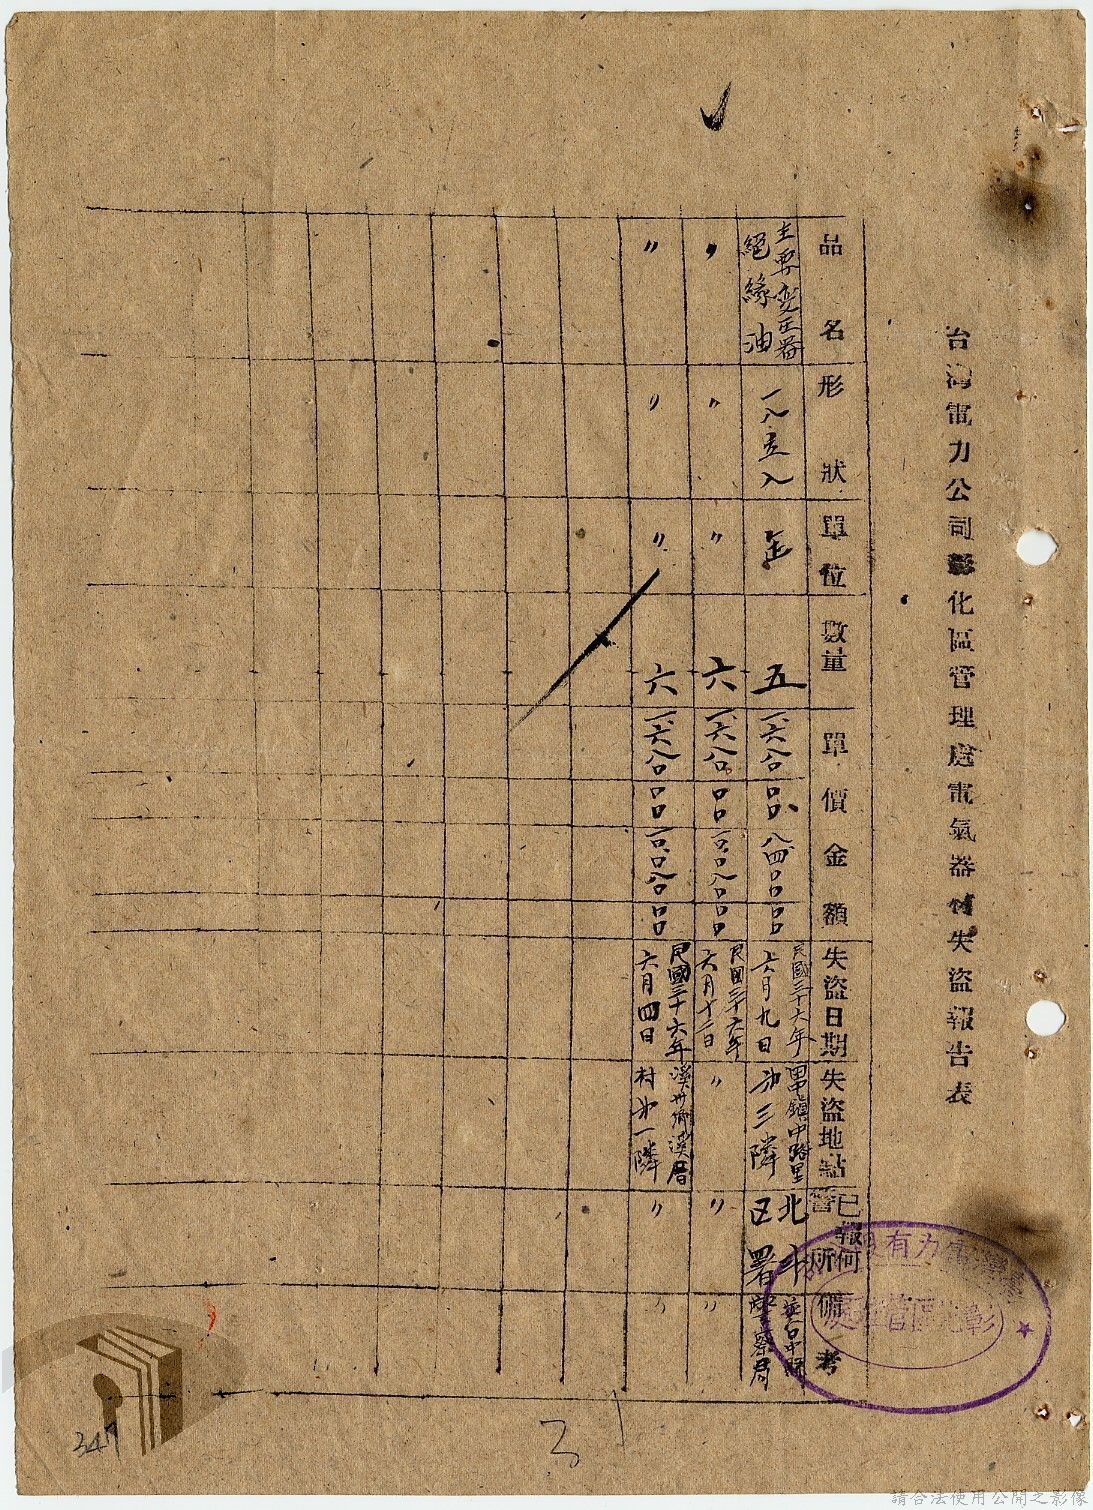 台灣電力公司彰化區管理處電氣器材失盜報告表
品名
形狀
單位
數量
單價
金額
失盜日期
失盜地點
已報何
警所
備考
主要変圧器
絕緣油
一八立入
缶
五
一六八〇
〇〇
八四〇〇
〇〇
民國三十六年
六月九日
田中鎮中路里
第三隣
北斗
区署
並台中縣
警察局
〃
〃
〃
六
一六八〇
〇〇
一〇〇八〇
〇〇
民國三十六年
六月十一日
〃
〃
〃
〃
〃
〃
六
一六八〇
〇〇
一〇〇八〇
〇〇
民國三十六年
六月四日
溪州鄉溪厝
村第一隣
〃
〃
彰化區管理處
347
3
請合法使用公開之影像